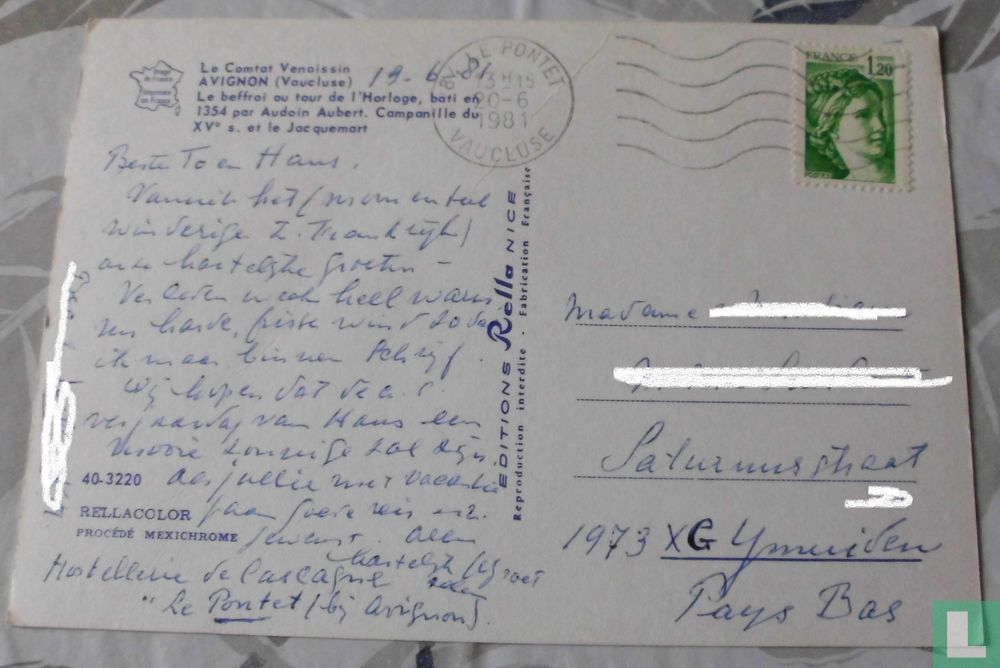 Image
de France
Imprimée
en France
Le Comtat Venaissin
AVIGNON (Vaucluse)
Le beffroi ou tour de l'Horloge, bati en
1354 par Audoin Aubert. Campanille du
XVe s. et le Jacquemart
19-6-81
84 LE PONTET
13H15
20-6
1981
VAUCLUSE
FRANCE
1,20
POSTES
Beste To en Hans,
Vanuit het (momenteel
winderige Z. Frankrijk)
onze hartelijke groeten -
Verleden week heel warm
nu harde, frisse wind zodat
ik maar binnen schrijf.
Wij hopen dat de a.s.
verjaardag van Hans een
mooie zonnige zal zijn
Als jullie met vacantie
gaan goede reis enz.
gewenst. Allen
hartelijk gegroet
Hostellerie de Cassagne
"Le Pontet (bij Avignon)
40-3220
RELLACOLOR
PROCÉDÉ MEXICHROME
EDITIONS Rella NICE
Reproduction interdite - Fabrication Française
Madame
Saturnusstraat
1973 XG Ymuiden
Pays Bas
L